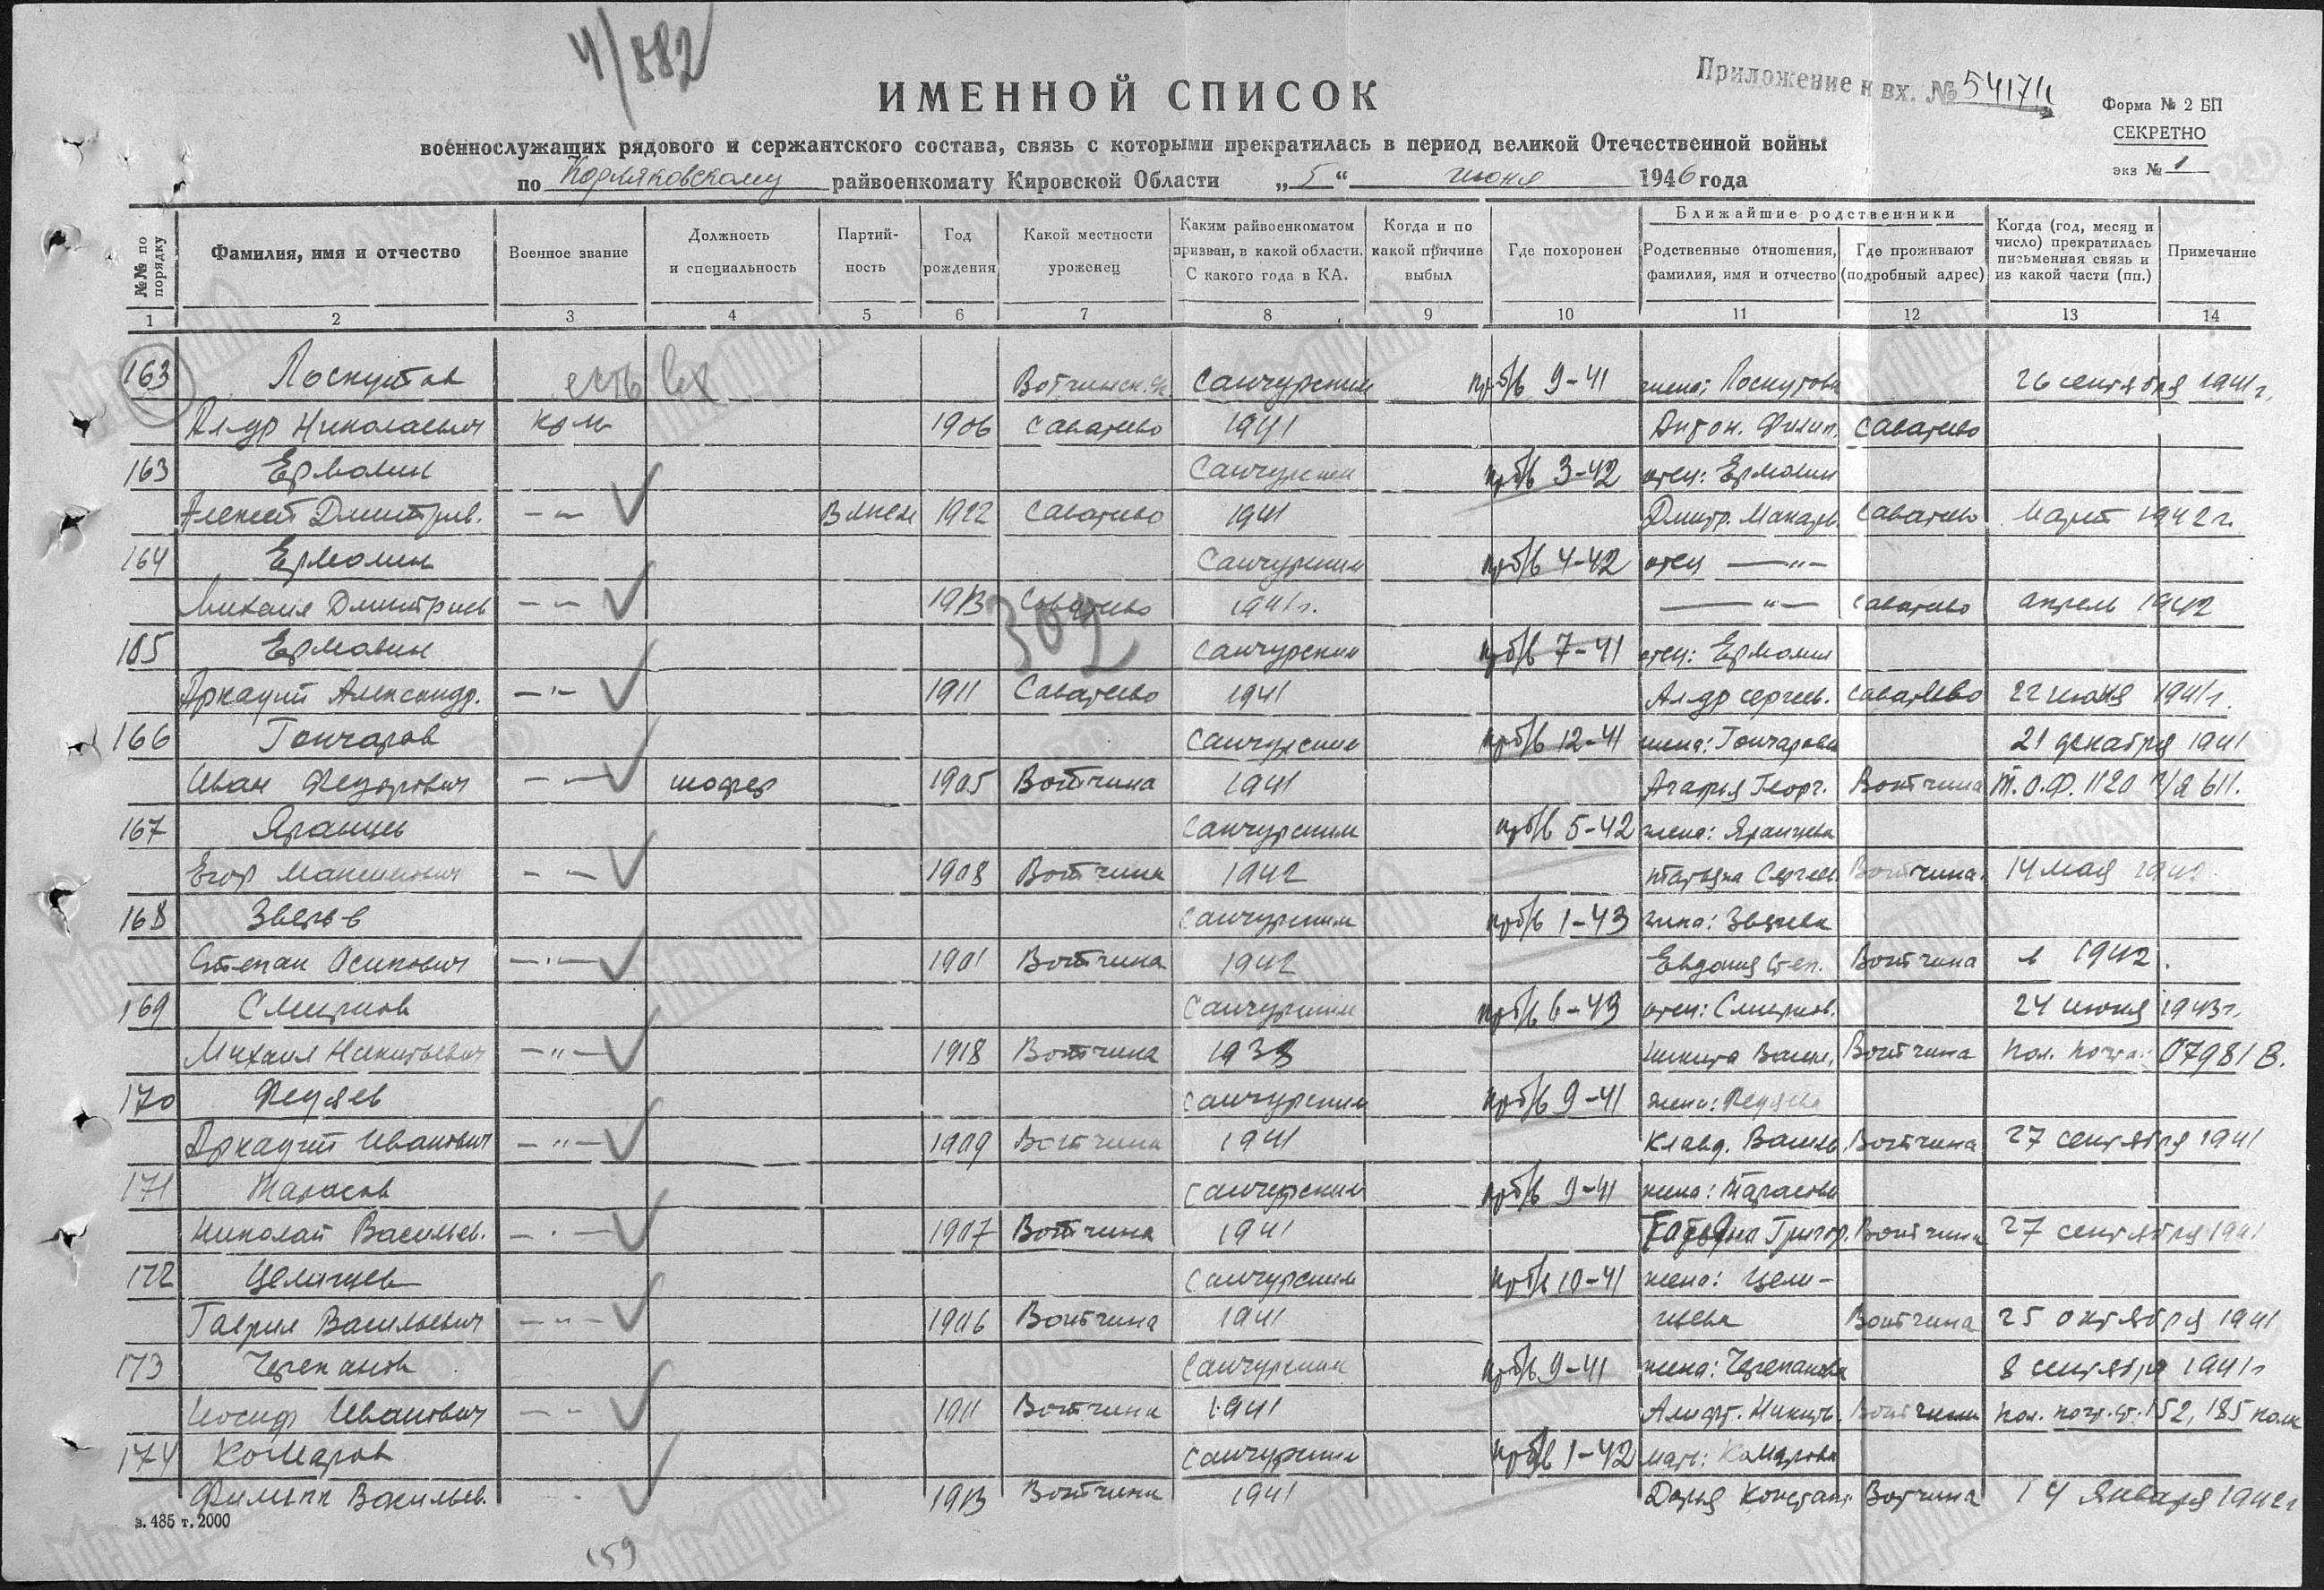 4/882
ИМЕННОЙ СПИСОК
Приложение к вх. № 54174
Форма № 2 БП
СЕКРЕТНО
экз № 1
военнослужащих рядового и сержантского состава, связь с которыми прекратилась в период великой Отечественной войны
по Корляковскому райвоенкомату Кировской Области „5“ июня 1946 года
№№ по порядку
Фамилия, имя и отчество
Военное звание
Должность и специальность
Партий-ность
Год рождения
Какой местности уроженец
Каким райвоенкоматом призван, в какой области. С какого года в КА.
Когда и по какой причине выбыл
Где похоронен
Ближайшие родственники
Родственные отношения, фамилия, имя и отчество
Где проживают (подробный адрес)
Когда (год, месяц и число) прекратилась письменная связь и из какой части (пп.)
Примечание
1 2 3 4 5 6 7 8 9 10 11 12 13 14
163 Лоскутов есть Санчурским пр б/в 9-41 жена: Лоскутова 26 сентября 1941 г.
Ал-др Николаевич 1906 Саватеево 1941 Антон. Филип. Саватеево
163 Ермолин Санчурским пр б/в 3-42 отец: Ермолин
Алексей Дмитрив. -"- 1922 Саватеево 1941 Дмитр. Макаров. Саватеево Март 1942 г.
164 Ермолин Санчурским пр б/в 4-42 отец -"-
Михаил Дмитриев -"- 1913 Саватеево 1941 г. -"- Саватеево апрель 1942
309
165 Ермолин Санчурским пр б/в 7-41 отец: Ермолин
Аркадий Александр. -"- 1911 Саватеево 1941 Ал-др Сергеев. Саватеево 22 июня 1941 г.
166 Гончаров Санчурским пр б/в 12-41 жена: Гончарова 21 декабря 1941
Иван Федорович -"- шофер 1905 Вотчина 1941 Агафья Георг. Вотчина Т.О.Ф. 1120 п/я 611.
167 Яранцев Санчурским пр б/в 5-42 жена: Яранцева
Егор Максимович -"- 1908 Вотчина 1942 Татьяна Сергеев Вотчина 14 мая 1942
168 Зверев Санчурским пр б/в 1-43 жена: Зверева
Степан Осипович -"- 1901 Вотчина 1942 Евдокия Степ. Вотчина в 1942.
169 Смирнов Санчурским пр б/в 6-43 отец: Смирнов. 24 июня 1943 г.
Михаил Никитьевич -"- 1918 Вотчина 1938 Никита Васил. Вотчина Пол. почта: 07981 В.
170 Федяев Санчурским пр б/в 9-41 жена: Федяева
Аркадий Иванович -"- 1909 Вотчина 1941 Клавд. Василь Вотчина 27 сентября 1941
171 Тарасов Санчурским пр б/в 9-41 жена: Тарасова
Николай Васильев. -"- 1907 Вотчина 1941 Татьяна Григор. Вотчина 27 сентября 1941
172 Целищев Санчурским пр б/в 10-41 жена: Цели-
Гаврил Васильевич -"- 1906 Вотчина 1941 щева Вотчина 25 октября 1941
173 Черепанов Санчурским пр б/в 9-41 жена: Черепанова 8 сентября 1941 г
Иосиф Иванович -"- 1911 Вотчина 1941 Никить. Вотчина Пол. почт. ст. 152, 185 полк
174 Комаров Санчурским пр б/в 1-42 мать: Комарова
Филипп Васильев. 1913 Вотчина 1941 Дарья Констант. Вотчина 14 января 1942 г
з. 485 т. 2000
159